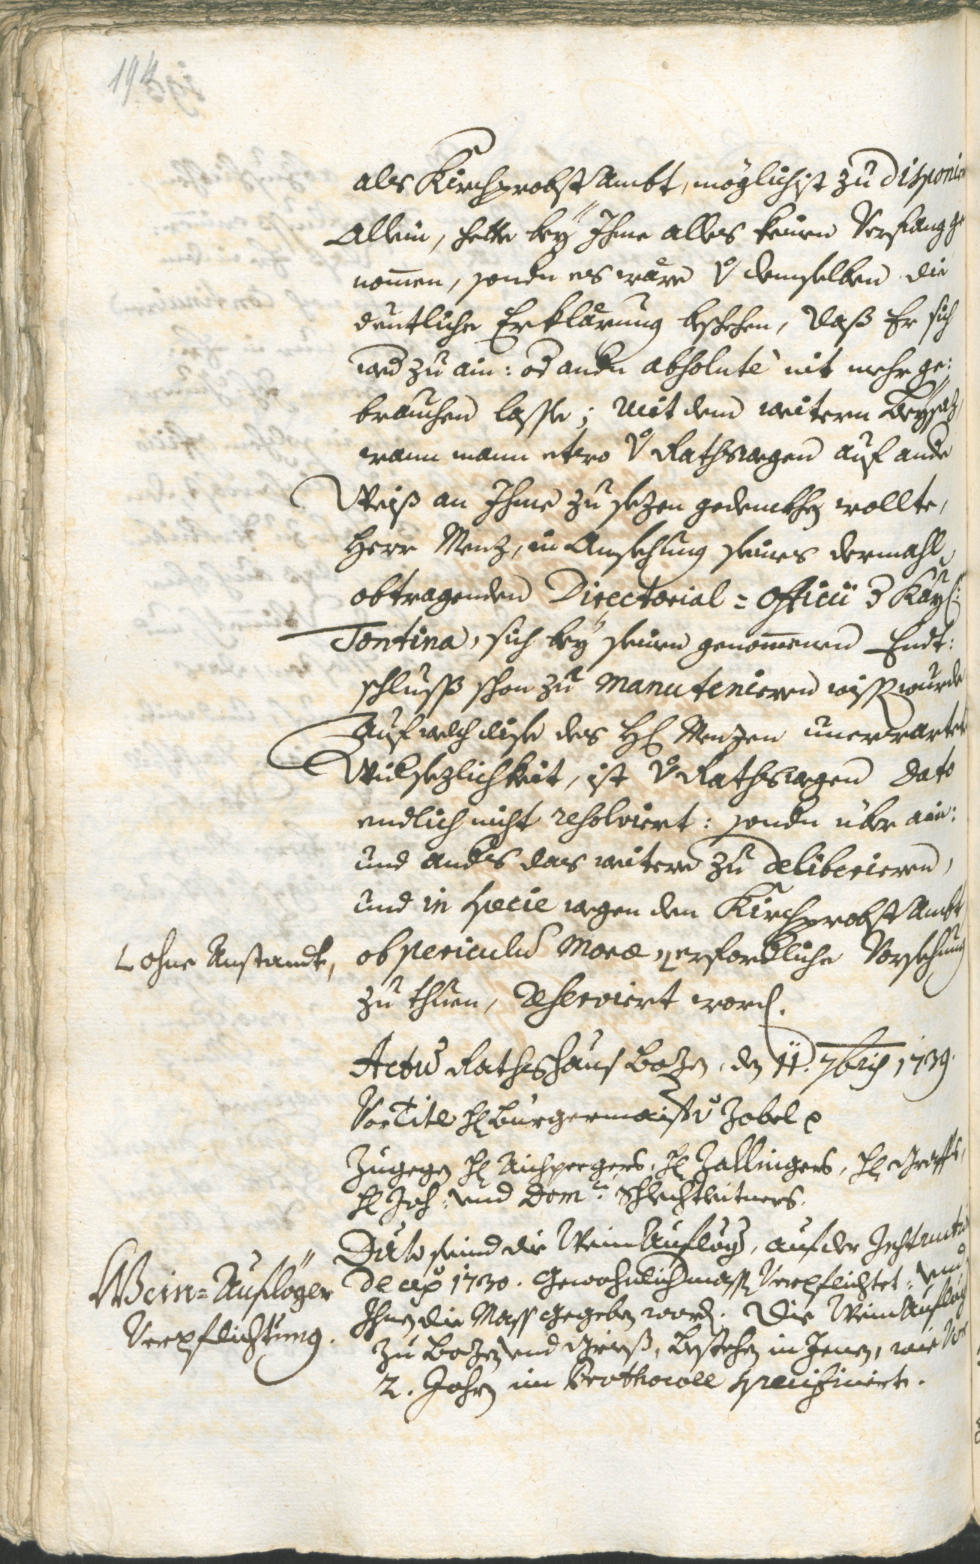 194
als Kirchprobst Ambt, möglichist zu disponir
Allein, hette bey Ihme alles keinen Verfang ge
nommen, sondn es wäre v demselben die
deutliche Erklärung beschehen, daß Er sich
wed zu ain: od andn absolutè nit mehr ge:
brauchen lasse; mit dem weitern Beysaz
wann mann etwo v Rathswegen auf ande
Weiß an Ihme zu sezen gedenkhen wollte,
Herr Menz, in Ansehung seines dermahl
obtragenden Directorial = Officii d Kay:
Tontina, sich bey seinen genommenen Endt:
schluss schon zu manutenieren wissen wurde
Auf welch dise des H Menzen unerwartet
Widsezlichkeit, ist v Rathswegen dato
endlich nicht resolviert: sondn über ain:
und andes das weitere zu deliberieren,
und in specie wegen dem Kirchprobst Ambt
ohne Anstandt,
ob periculum moræ erforderliche Vorsehung
zu thuen, reserviert word.
Actum Rathshaus Bozen, den 11. 7bris 1739.
Vor Titl H Burgermaister v Zobel
Zugegen H Aichpergers, H Zallingers, H Graffs,
H Joh: und Dom: Schlechtleitners.
Wein = Aufleger
Verpflichtung.
Dato seind die Wein Aufleger, auf der Instruction
de aõ 1730. gewohnlichermass Verpflichtet: und
Ihnen die Mass gegeben word. Die Wein Aufleger
zu Bozen und Grieß, bestehen in Jenen, wie vor
2. Jahren im Prothocoll specificiert.